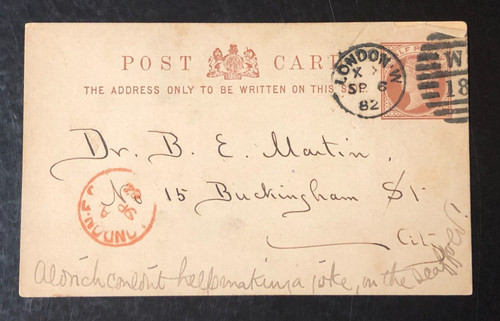 POST CARD
THE ADDRESS ONLY TO BE WRITTEN ON THIS S
HALF P
LONDON·W
X 7
SP 6
82
W
18
Dr. B. E. Martin.
No 15 Buckingham St.
City
LONDON
A
SP
82
Aldrich couldnt help making a joke, on the scaffold!